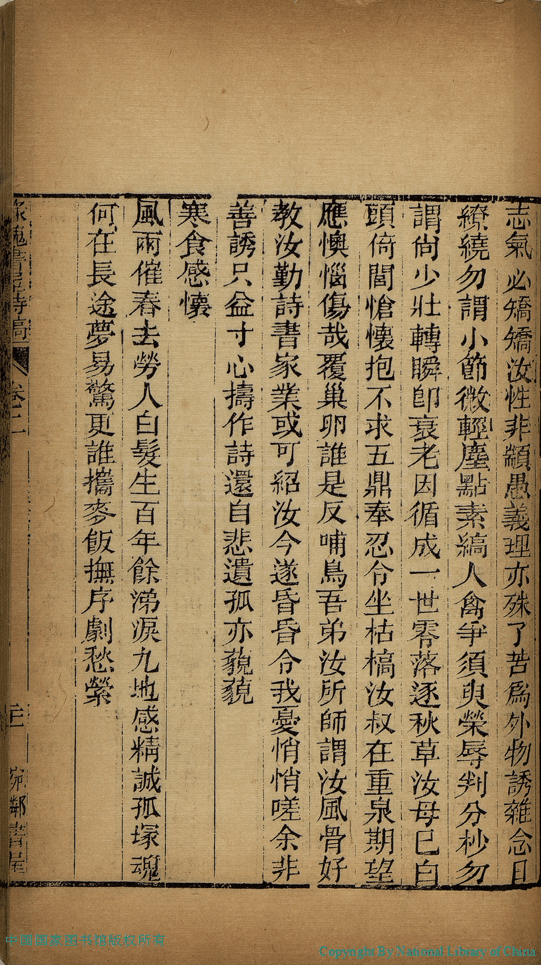 志氣必矯矯汝性非顓愚義理亦殊了苦爲外物誘雜念日
繚繞勿謂小節微輕塵點素縞人禽爭須臾榮辱判分杪勿
謂尙少壯轉瞬卽衰老因循成一世零落逐秋草汝母已白
頭倚閭愴懷抱不求五鼎奉忍令坐枯槁汝叔在重泉期望
應懊惱傷哉覆巢卵誰是反哺鳥吾弟汝所師謂汝風骨好
敎汝勤詩書家業或可紹汝今遂昏昏令我憂悄悄嗟余非
善誘只益寸心擣作詩還自悲遺孤亦藐藐
寒食感懷
風雨催春去勞人白髮生百年餘涕淚九地感精誠孤塚魂
何在長途夢易驚更誰攜麥飯撫序劇愁縈
書 詩稿 卷二
鄰書屋
中國國家图书馆版权所有
Copyright By National Library of China